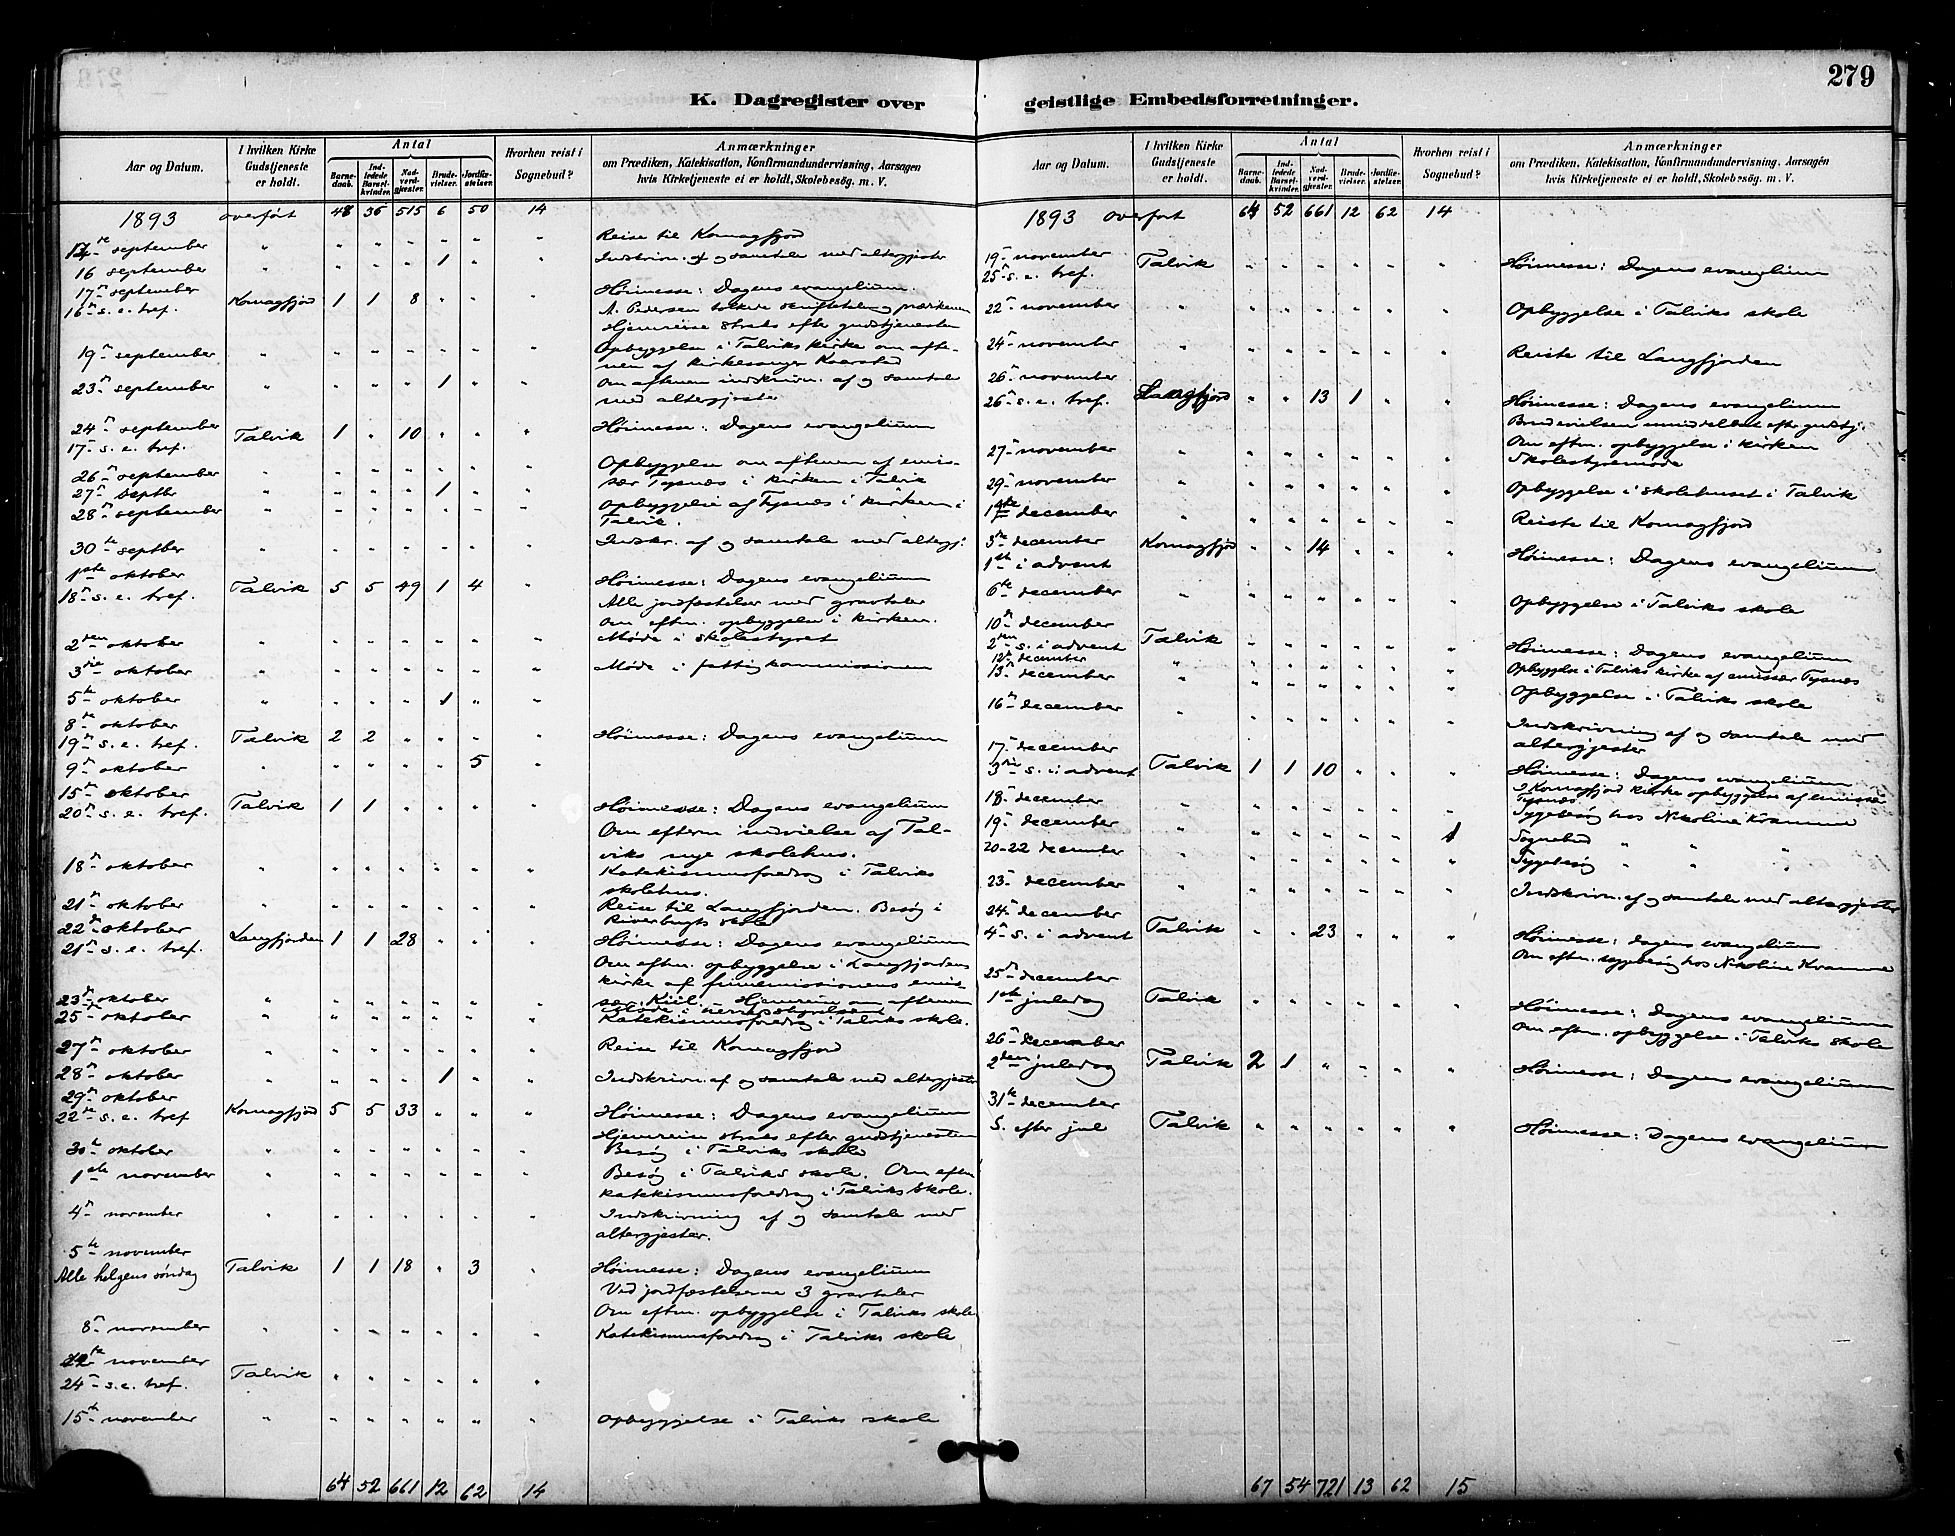 279
K. Dagregister over geistlige Embedsforretninger.
Aar og Datum.
I hvilken Kirke Gudstjeneste er holdt.
Antal
Barnedaab.
Indledede Barselkvinder.
Nadverdgjester.
Brudevielser.
Jordfæstelser.
Hvorhen reist i Sognebud?
Anmærkninger
om Prædiken, Katekisation, Konfirmandundervisning, Aarsagen
hvis Kirketjeneste ei er holdt, Skolebesøg. m. V.
1893 overført 48 36 515 6 50 14
14de september " " " " " " " Reise til Komagfjord
16 september " " " " 1 " " Indskrivn. af og samtale med altergjester
17n september
16n s. e. tref. Komagfjord 1 1 8 " " " Høimesse: Dagens evangelium.
A. Pedersen tolkede skriftetalen og prækenen
Hjemreise straks efter gudstjenesten
19n september " " " " " " " Opbyggelse i Talviks kirke om afte-
nen af kirkesanger Kaarstad
23n september " " " " 1 " " Om aftenen indskrivn. af og samtale
med altergjester
24n september
17n s. e. tref. Talvik 1 " 10 " " " Høimesse: Dagens evangelium
26n september " " " " " " Opbyggelse om aftenen af emis-
sær Tysnes i kirken i Talvik
27n septbr " " " " 1 " "
28n september " " " " " " " Opbyggelse af Tysnes i kirken i
Talvik.
30te septber " " " " " " " Indskr. af og samtale med altergj:
1ste oktober
18n s. e. tref. Talvik 5 5 49 1 4 Høimesse: Dagens evangelium
Alle jordfæstelser med gravtaler
Om eftm. opbyggelse i kirken.
2den oktober " " " " " " " Møde i skolestyret
3die oktober " " " " " " " Møde i fattigkommissionen
5te oktober " " " " 1 " "
8de oktober
19n s. e. tref. Talvik 2 2 " " " " Høimesse: Dagens evangelium
9n oktober " " " " " 5 "
15n oktober
20n s. e. tref. Talvik 1 1 " " " " Høimesse: Dagens evangelium
Om efterm indvielse af Tal-
viks nye skolehus.
18n oktober " " " " " " " Katekismusforedrag i Talviks
skolehus.
21n oktober " " " " " " " Reise til Langfjorden. Besøg i
Riverbugts skole
22n oktober
21n s. e. tref. Langfjorden 1 1 28 " " " Høimesse: Dagens evangelium
Om eftm. opbyggelse i Langfjordens
kirke af finnemissionens emis-
sær Kiil. – Hjemreise om aftenen
23n oktober " " " " " " " Møde i herredsstyrelsen
25n oktober " " " " " " " Katekismusforedrag i Talviks skole.
27n oktober " " " " " " " Reise til Komagfjord
28n oktober " " " " 1 " " Indskrivn. af og samtale med altergjester
29n oktober
22n s. e. tref Komagfjord 5 5 33 " " " Høimesse: Dagens evangelium
Hjemreise straks efter gudstjenesten
30te oktober " " " " " " " Besøg i Talviks skole
1ste november " " " " " " " Besøg i Talviks skole. Om eftm
katekismusforedrag i Talviks skole.
4n november " " " " " " " Indskrivning af og samtale med
altergjester.
5te november
Alle helgens søndag Talvik 1 1 18 " 3 " Høimesse: Dagens evangelium
Ved jordfæstelserne 3 gravtaler
Om eftm. opbyggelse i Talviks skole
8n november " " " " " " " Katekismusforedrag i Talviks skole
november
24n s. e. tref. Talvik " " " " " "
15te november " " " " " " " Opbyggjelse i Talviks skole
64 52 661 12 62 14
Aar og Datum.
I hvilken Kirke Gudstjeneste er holdt.
Antal
Barnedaab.
Indledede Barselkvinder.
Nadverdgjester.
Brudevielser.
Jordfæstelser.
Hvorhen reist i Sognebud?
Anmærkninger
om Prædiken, Katekisation, Konfirmandundervisning, Aarsagen
hvis Kirketjeneste ei er holdt, Skolebesøg. m. V.
1893 overført 64 52 661 12 62 14
19n november
25n s. e. tref. Talvik " " " " " " Høimesse: Dagens evangelium
22n november " " " " " " " Opbyggelse i Talviks skole
24n november " " " " " " " Reiste til Langfjorden
26n november
26n s. e. tref. Langfjord " " 13 1 " " Høimesse: Dagens evangelium
Brudevielsen umiddelbart efter gudstj.
Om eftm. opbyggelse i kirken
27n november " " " " " " " Skolestyremøde
29n november " " " " " " " Opbyggelse i skolehuset i Talvik
1ste december " " " " " " " Reiste til Komagfjord
3die december
1st i advent Komagfjord " " 14 " " " Høimesse: Dagens evangelium
6te december " " " " " " " Opbyggelse i Talviks skole
10n december
2den s. i advent Talvik " " " " " " Høimesse: Dagens evangelium
12n december " " " " " " " Opbyggelse i Talviks kirke af emissær Tysnes
13n december " " " " " " " Opbyggelse i Talviks skole
16n december " " " " " " " Indskrivning af og samtale med
altergjester
17n december
3die s. i advent Talvik 1 1 10 " " " Høimesse: Dagens evangelium
I Komagfjord kirke opbyggelse af emissær
Tysnes
18n december " " " " " " " Sygebesøg hos Nikoline Kramme
19n december " " " " " " 1 Sognebud " " "
20-22 december " " " " " " " Sygebesøg " " "
23n december " " " " " " " Indskrivn. af og samtale med altergjester
24n december
4n s. i advent Talvik " " 23 " " " Høimesse: dagens evangelium
Om eftm. sygebesøg hos Nikoline Kramme
25n december
1ste juledag Talvik " " " " " " Høimesse: Dagens evangelium
Om eftm. opbyggelse i Talviks skole
26n december
2den juledag Talvik 2 1 " " " " Høimesse: Dagens evangelium
31te december
S. efter jul Talvik " " " " " " Høimesse: Dagens evangelium
67 54 721 13 62 15